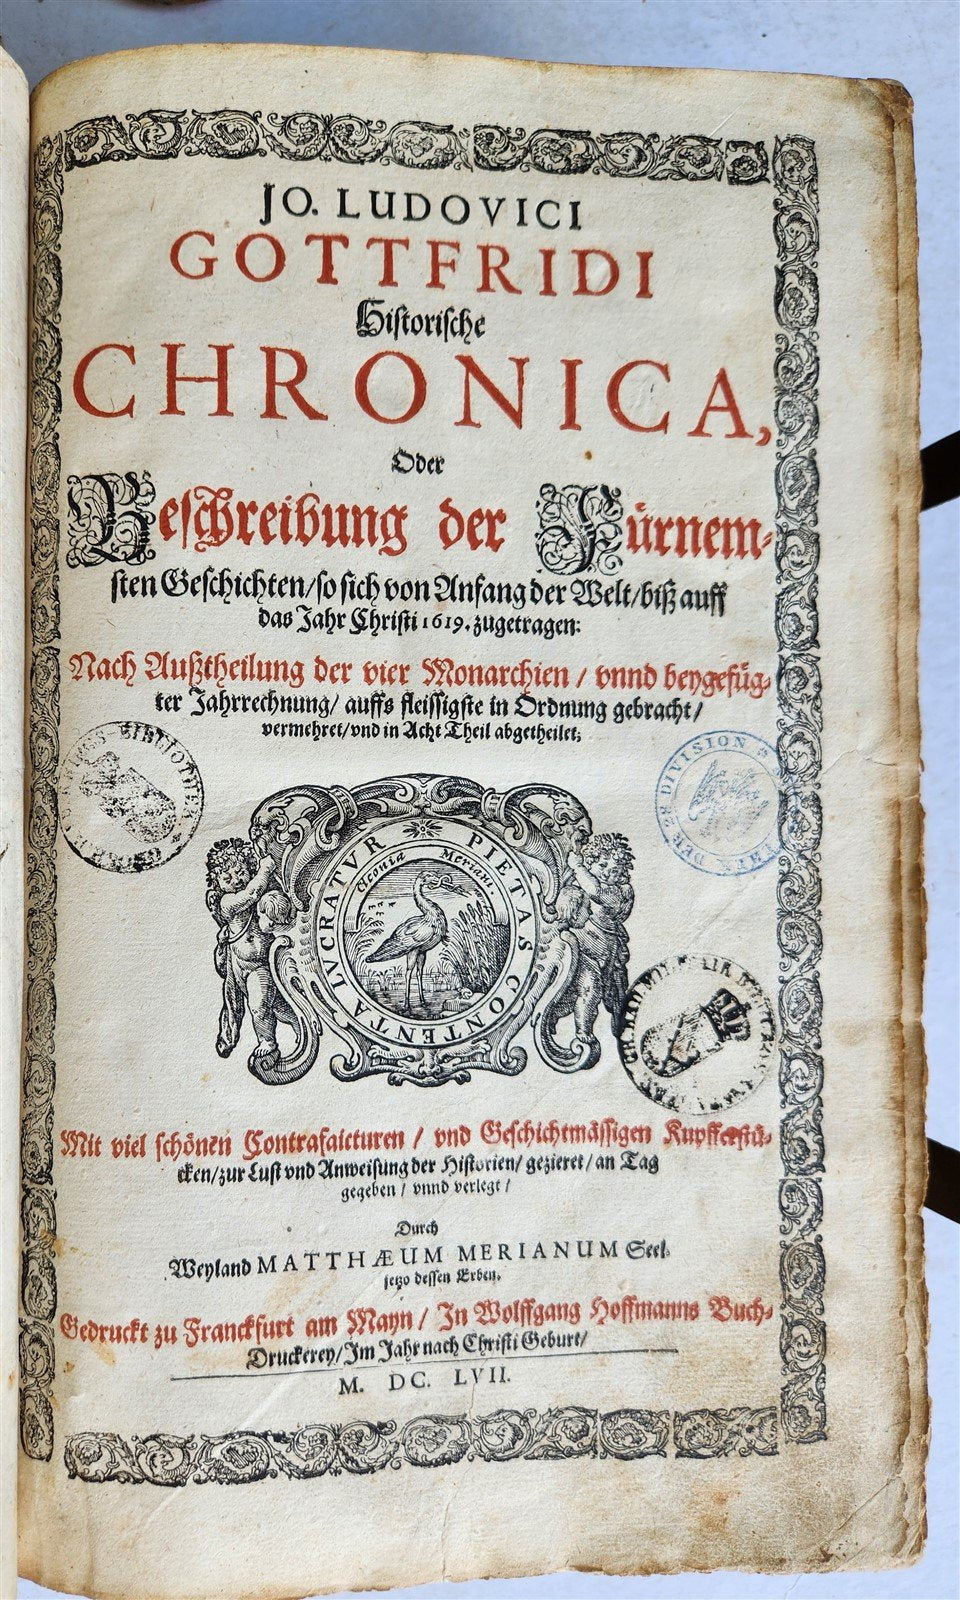 JO. LUDOVICI
GOTTFRIDI
Historische
CHRONICA,
Oder
Beschreibung der Fürnem-
sten Geschichten/so sich von Anfang der Welt/biß auff
das Jahr Christi 1619. zugetragen:
Nach Außtheilung der vier Monarchien / vnnd beygefüg-
ter Jahrrechnung/ auffs fleissigste in Ordnung gebracht/
vermehret/vnd in Acht Theil abgetheilet;
BIBLIOTHEK
DER 28 DIVISION
PIETAS CONTENTA LVCRATVR
Ciconia Meriani.
Mit viel schönen Contrafaicturen / vnd Geschichtmässigen Kupfferstü-
cken/zur Lust vnd Anweisung der Historien/ gezieret/an Tag
gegeben / vnnd verlegt/
Durch
Weyland MATTHÆUM MERIANUM Seel.
jetzo dessen Erben.
Gedruckt zu Franckfurt am Mayn / In Wolffgang Hoffmanns Buch-
Druckerey/Im Jahr nach Christi Geburt/
M. DC. LVII.